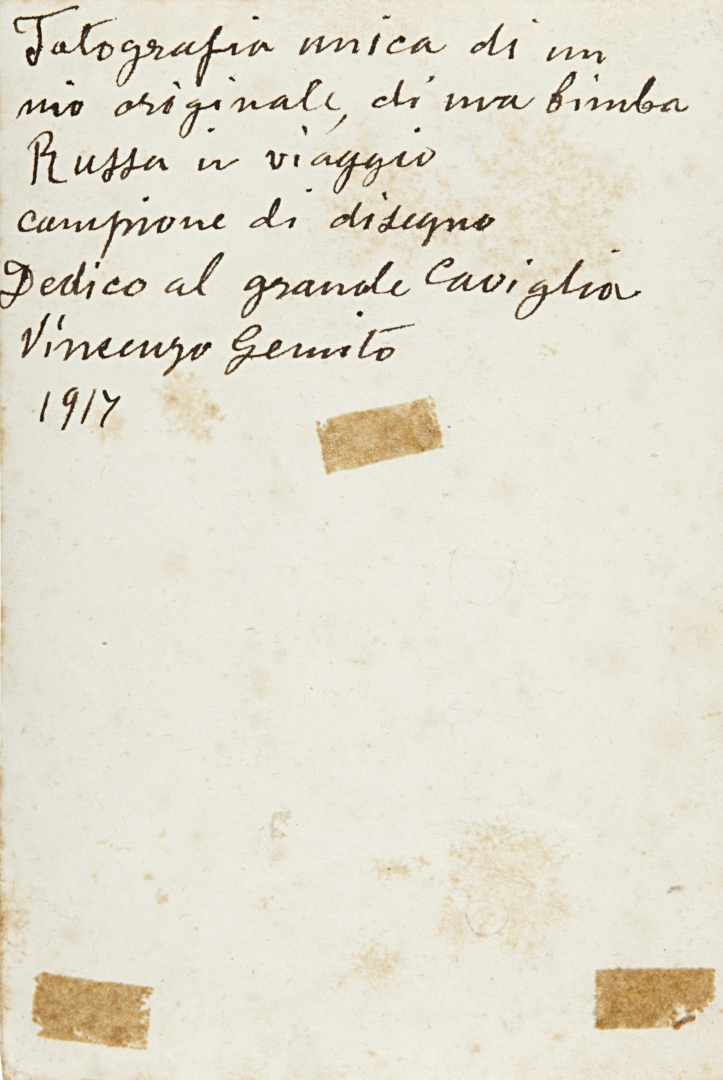 Fotografia unica di un
mio originale, di una bimba
Russa in viaggio
campione di disegno
Dedico al grande Caviglia
Vincenzo Gemito
1917